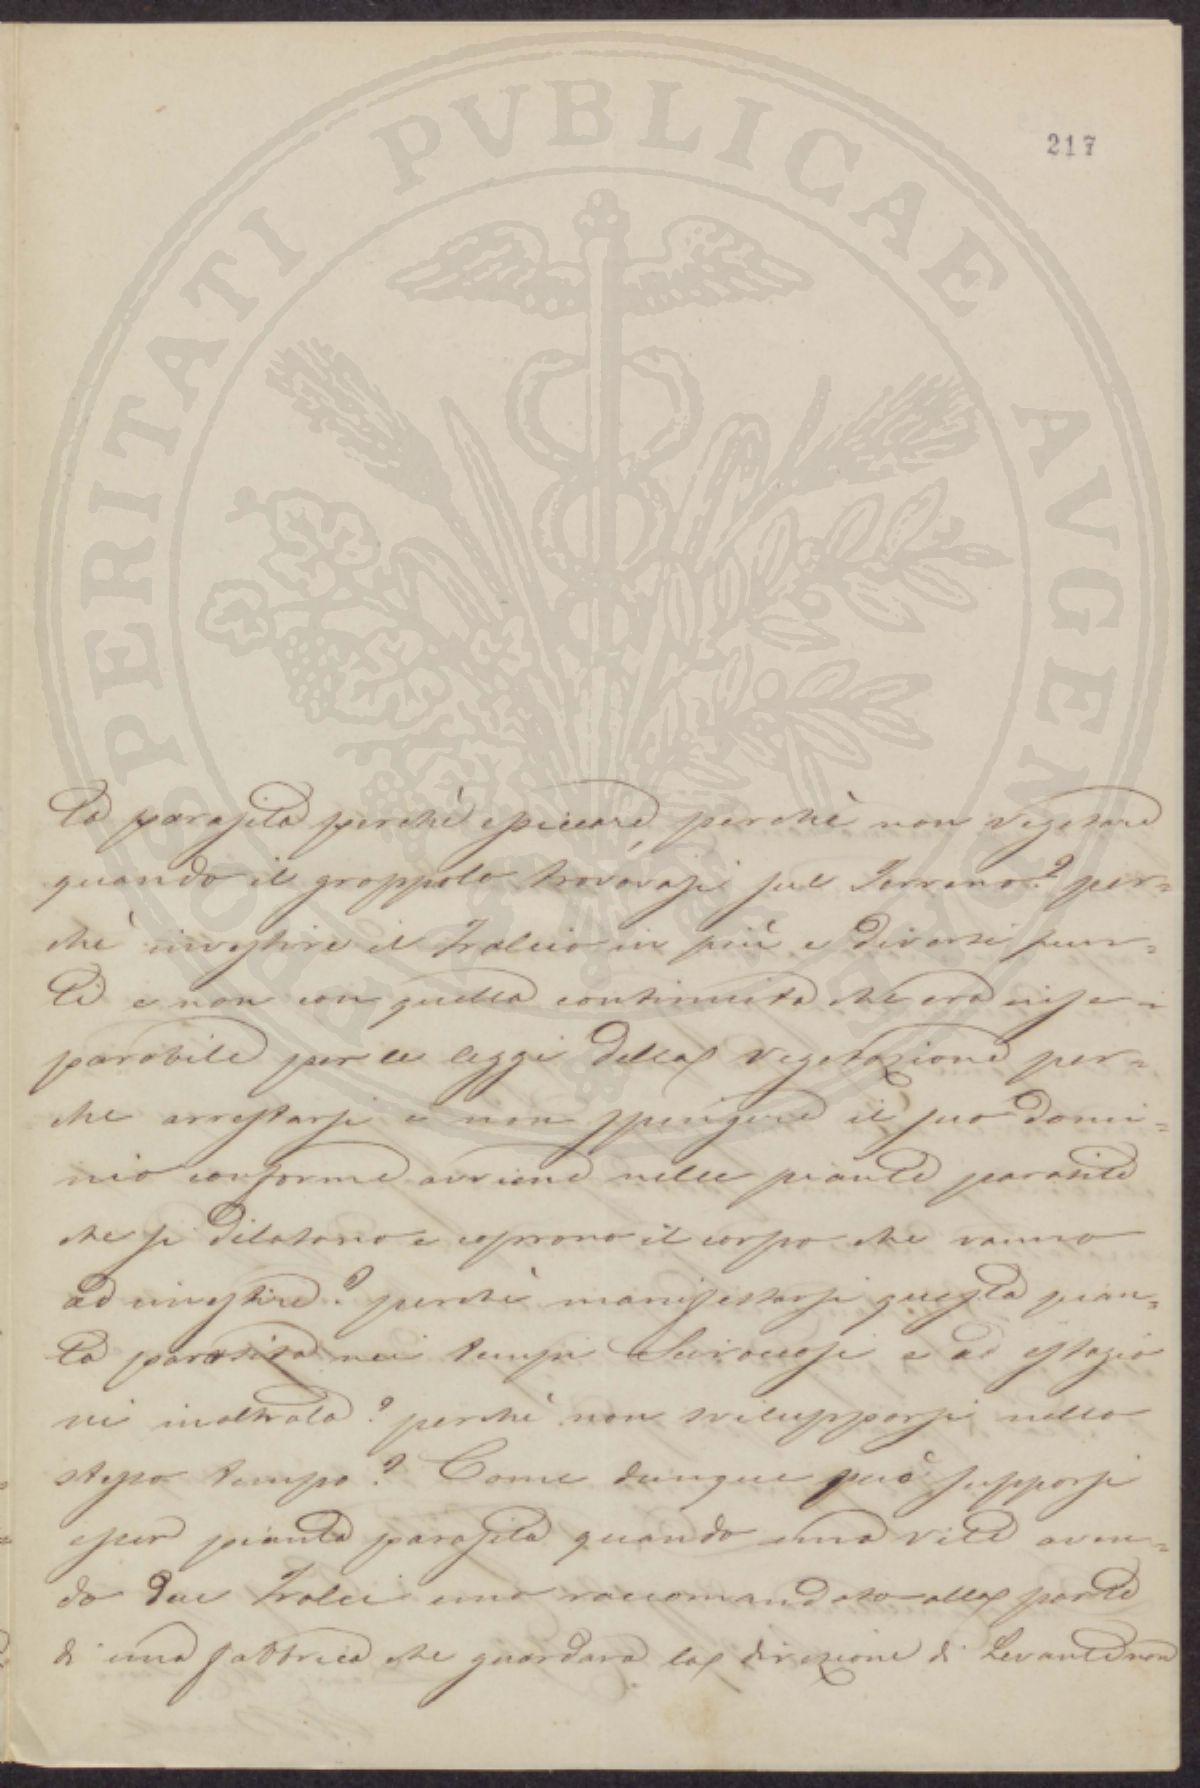 217
PROSPERITATI PVBLICAE AVGENDAE
ta parasita perchè epiccare, perchè non vegetare
quando il grappolo trovavasi sul Terreno? per=
chè investire il Tralcio in più e diversi pun=
ti e non con quella continuita che era inse=
parabile per le leggi della vegetazione per=
che arrestarsi e non spingere il suo domi=
nio conforme avviene nelle piante parasite
che si dilatano e coprono il corpo che vanno
ad investire? perchè manifestarsi questa pian=
ta parasita nei tempi Sciroccosi e ad estagio
ni inoltrata? perchè non svilupparsi nello
stesso tempo? Come dunque può supporsi
esser pianta parasita quando una vite aven=
do due Tralci uno raccomandato alla parte
di una fabbrica che guardava la direzione di Levante non